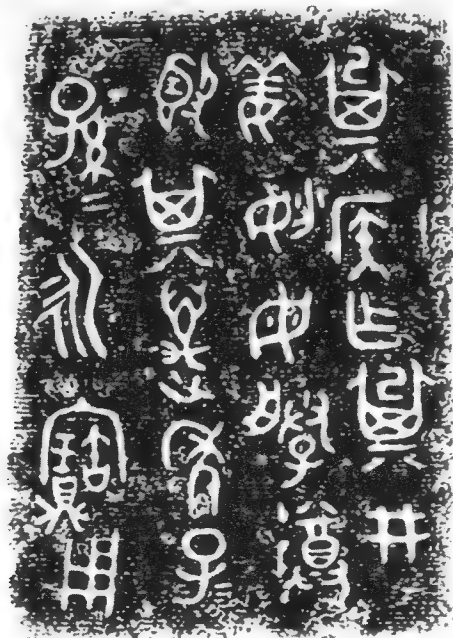 㠱侯乍㠱井
姜妢母媵尊
𣪘其萬年子=
孫=永寶用